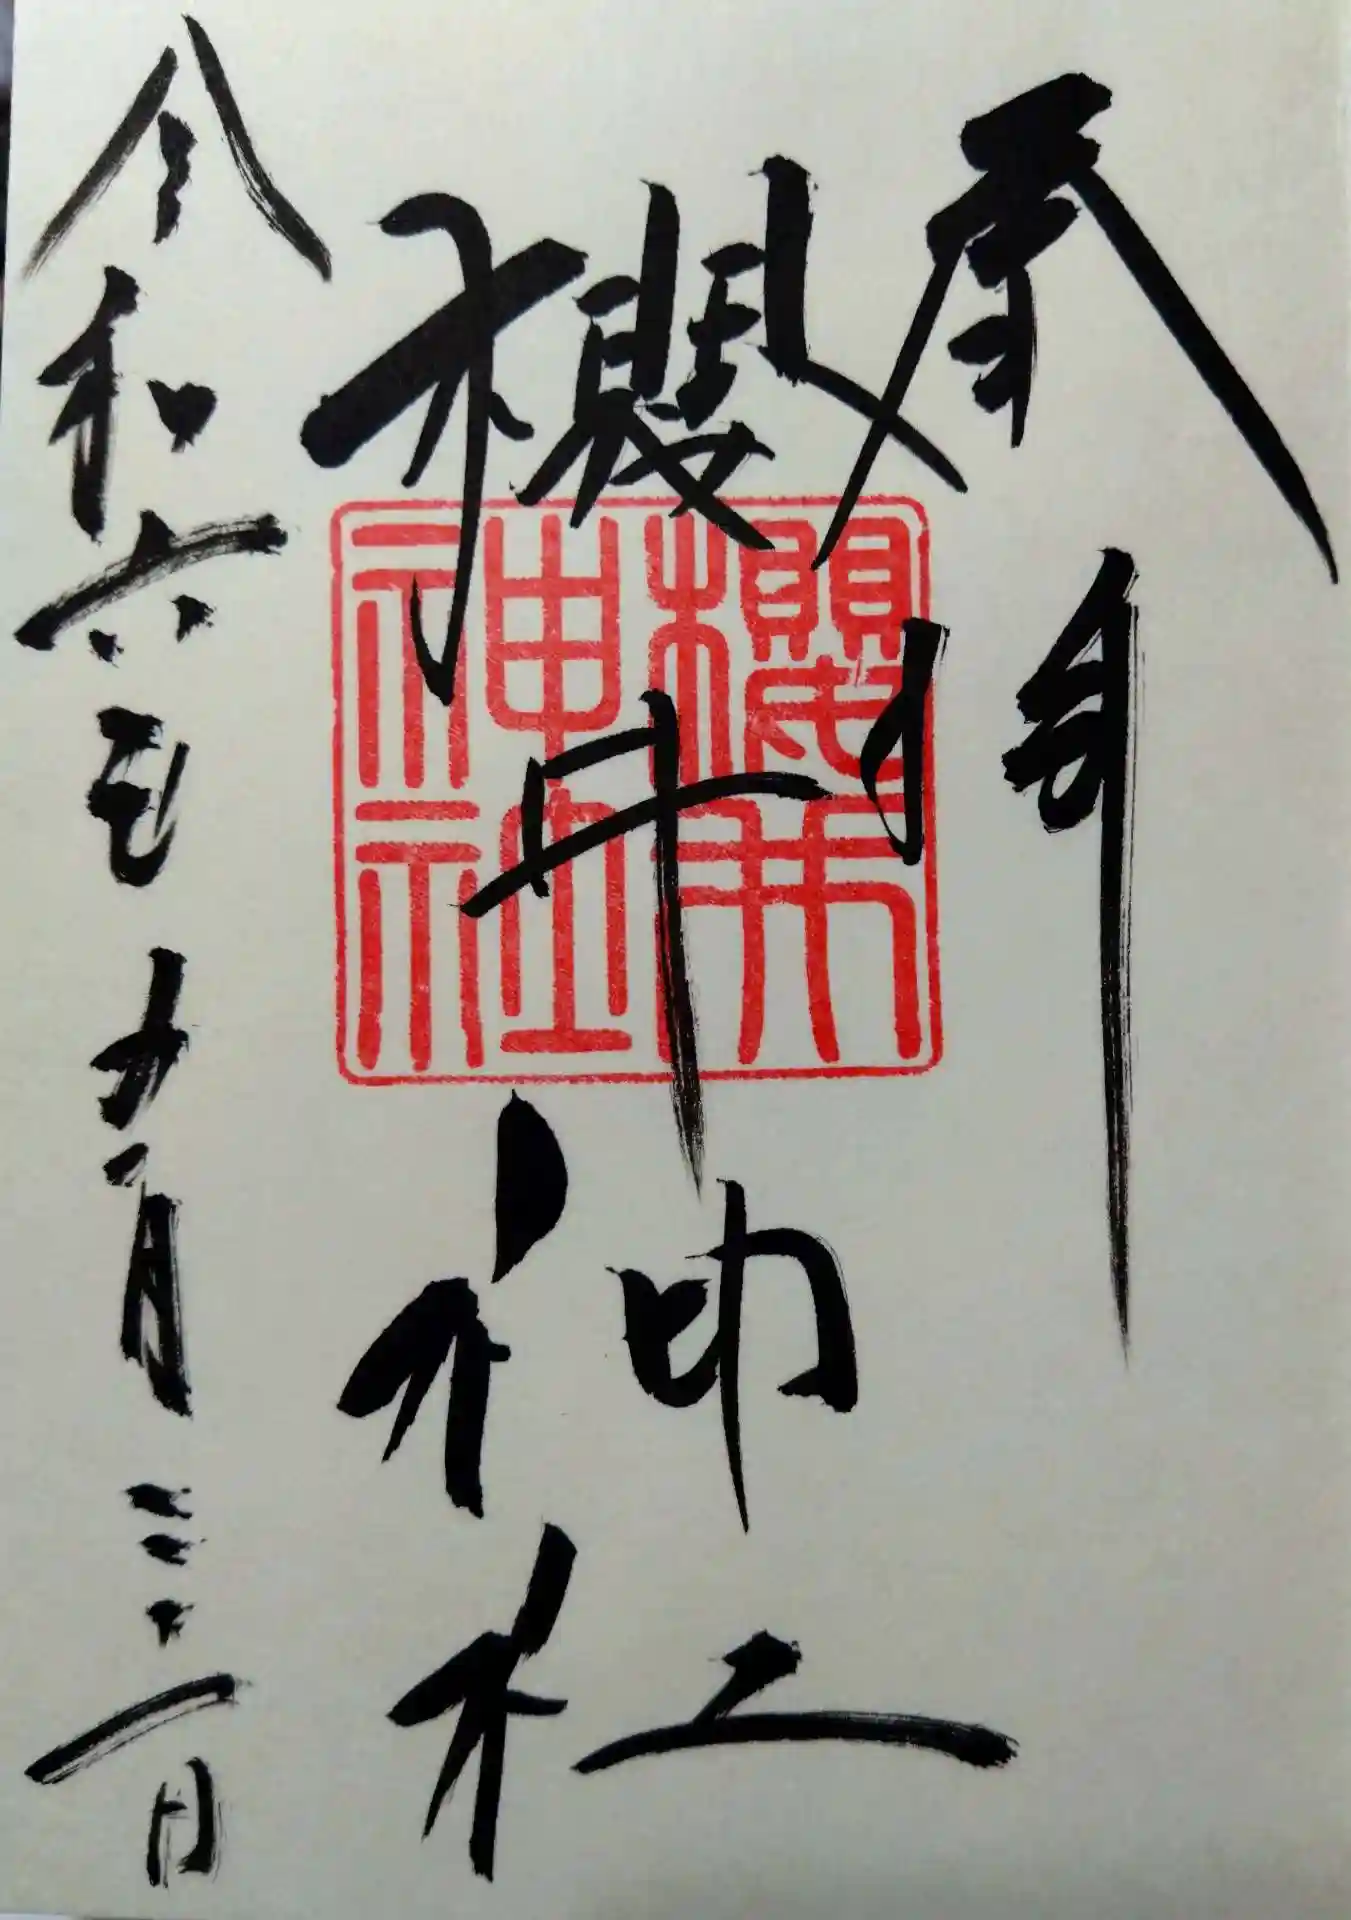 奉拝
櫻井神社
櫻井
神社
令和六年
月
日